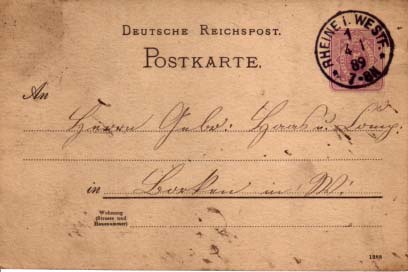 DEUTSCHE REICHSPOST.
POSTKARTE.
RHEINE I. WESTF.
4 1
89
7-8N
An
Herrn Gebr: Haas u.
in Borken in W:
Wohnung
(Strasse und
Hausnummer)
1288